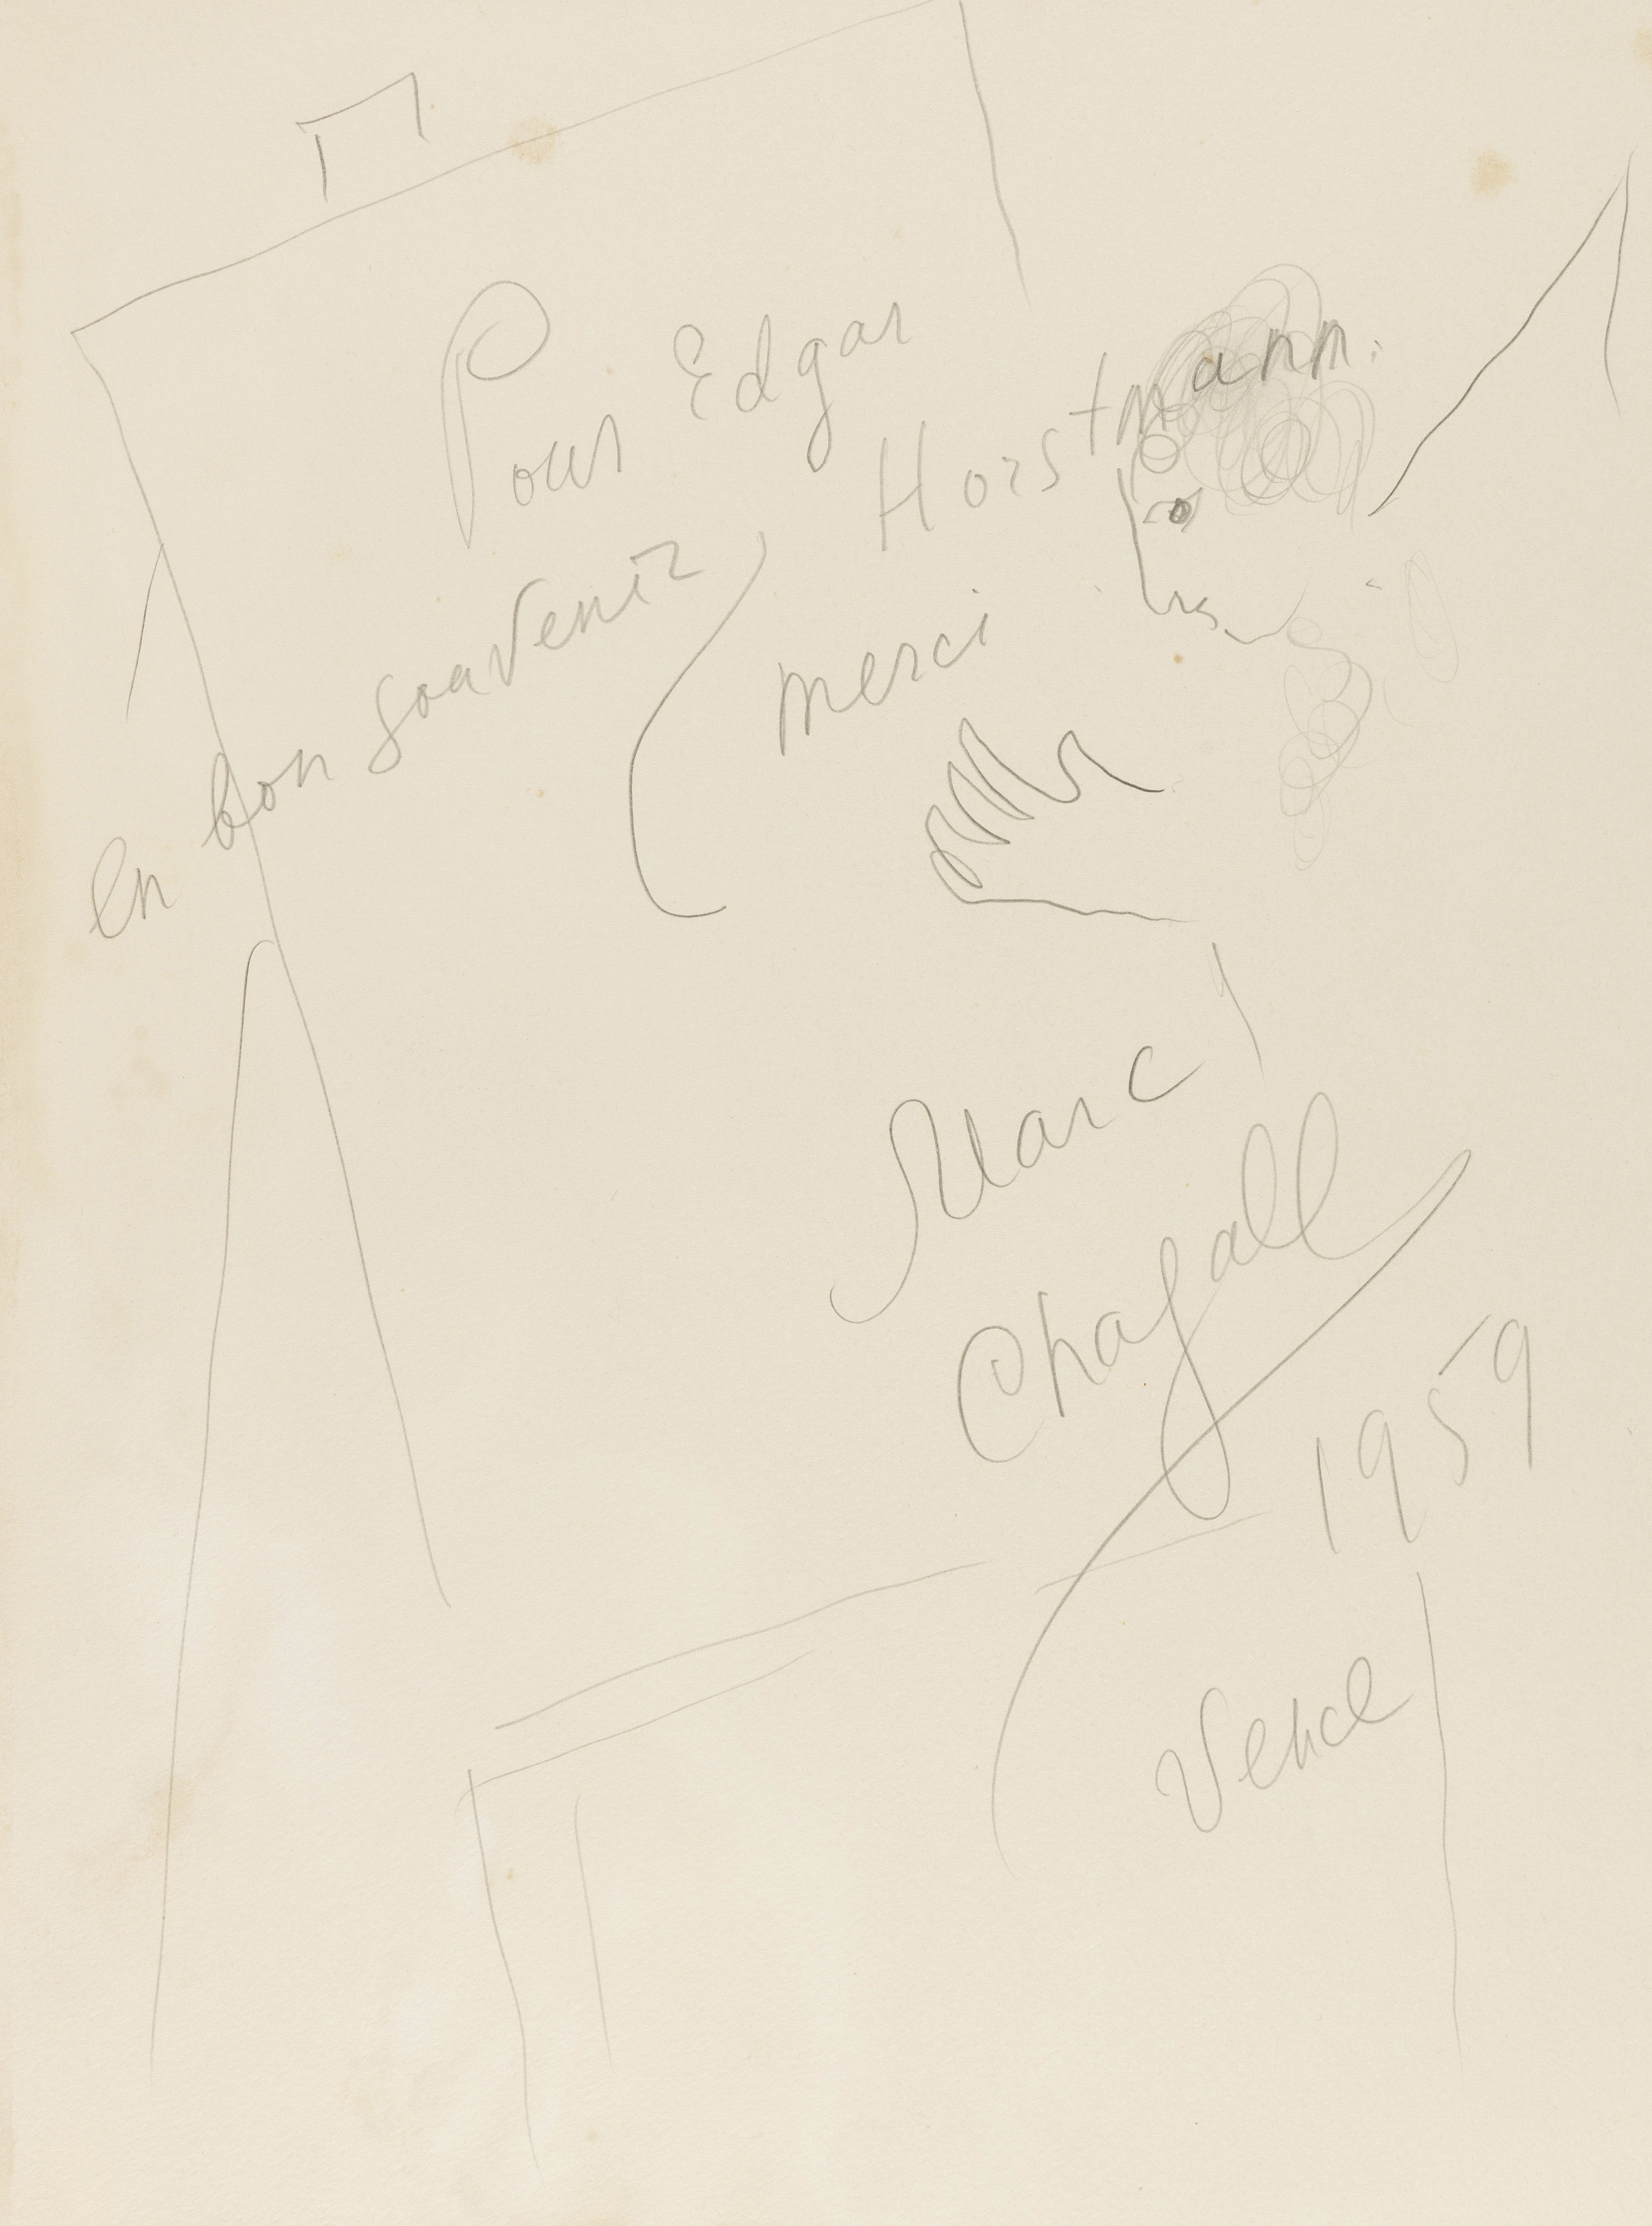 Pour Edgar
Horstmann.
en bon souvenir
merci
Marc
Chagall
1959
Vence